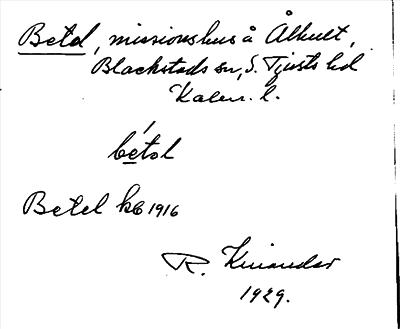 Betel, missionshus å Ålhult,
Blackstads sn, S. Tjusts hd
Kalm. l.
bétəl
Betel kb 1916
R. Kinander
1929.